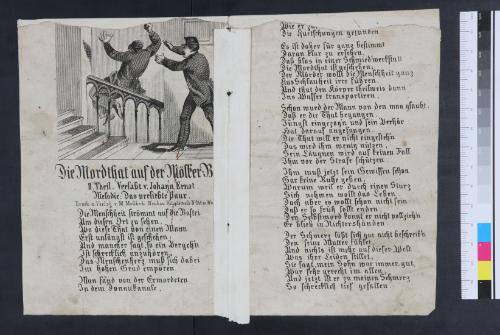 Die Mordthat auf der Mölker-B
II. Theil. Verfaßt v. Johann Ernst
Melodie: Das verliebte Paar.
Die Menschheit strömmt auf die Bastei
Um diesen Ort zu sehen,
Wo diese That von einem Mann
Erst unlängst ist geschehen,
Und mancher sagt, so ein Vergeh'n
Ist schrecklich anzuhören,
Das Menschenherz muß sich dabei
Im hohen Grad empören
Man fand von der Ermordeten
In dem Donaukanale,
Wie er zur
Die Kutschungen gefunden
Es ist daher für ganz bestimmt
Daran klar zu ersehen,
Daß blos in einer Schmiedwerkstatt
Die Mordthat ist geschehen;
Der Mörder wollt die Menschheit ganz
Aus Schlauheit irre führen,
Und that den Körper theilweis dann
Ins Wasser transportiren.
Schon wurd der Mann von den man glaubt,
Daß er die That begangen,
Jüngst eingezogen und sein Verhör
Hat darauf angefangen
Die That will er nicht eingesteh'n
Das wird ihm wenig nützen,
Sein Läugnen wird auf keinen Fall
Ihm vor der Strafe schützen
Ihm muß jetzt sein Gewissen schon
Gar keine Ruhe geben,
Warum weil er durch einen Sturz
Sich nehmen wollt das Leben,
Doch aber es wollt schon nicht sein
Daß er so früh sollt enden
Den Selbstmord konnt er nicht vollzieh'n
Er blieb in Richtershänden
Der Schmerz läßt sich gar nicht beschreib'n
Den seine Mutter fühlet,
Und nichts ist mehr auf dieser Welt
Was ihre Leiden stillet,
Sie sagt, mein Sohn war immer gut,
War sehr gerecht im allen,
Und jetzt ist er zu meinen Schmerz
So schrecklich tief gefallen